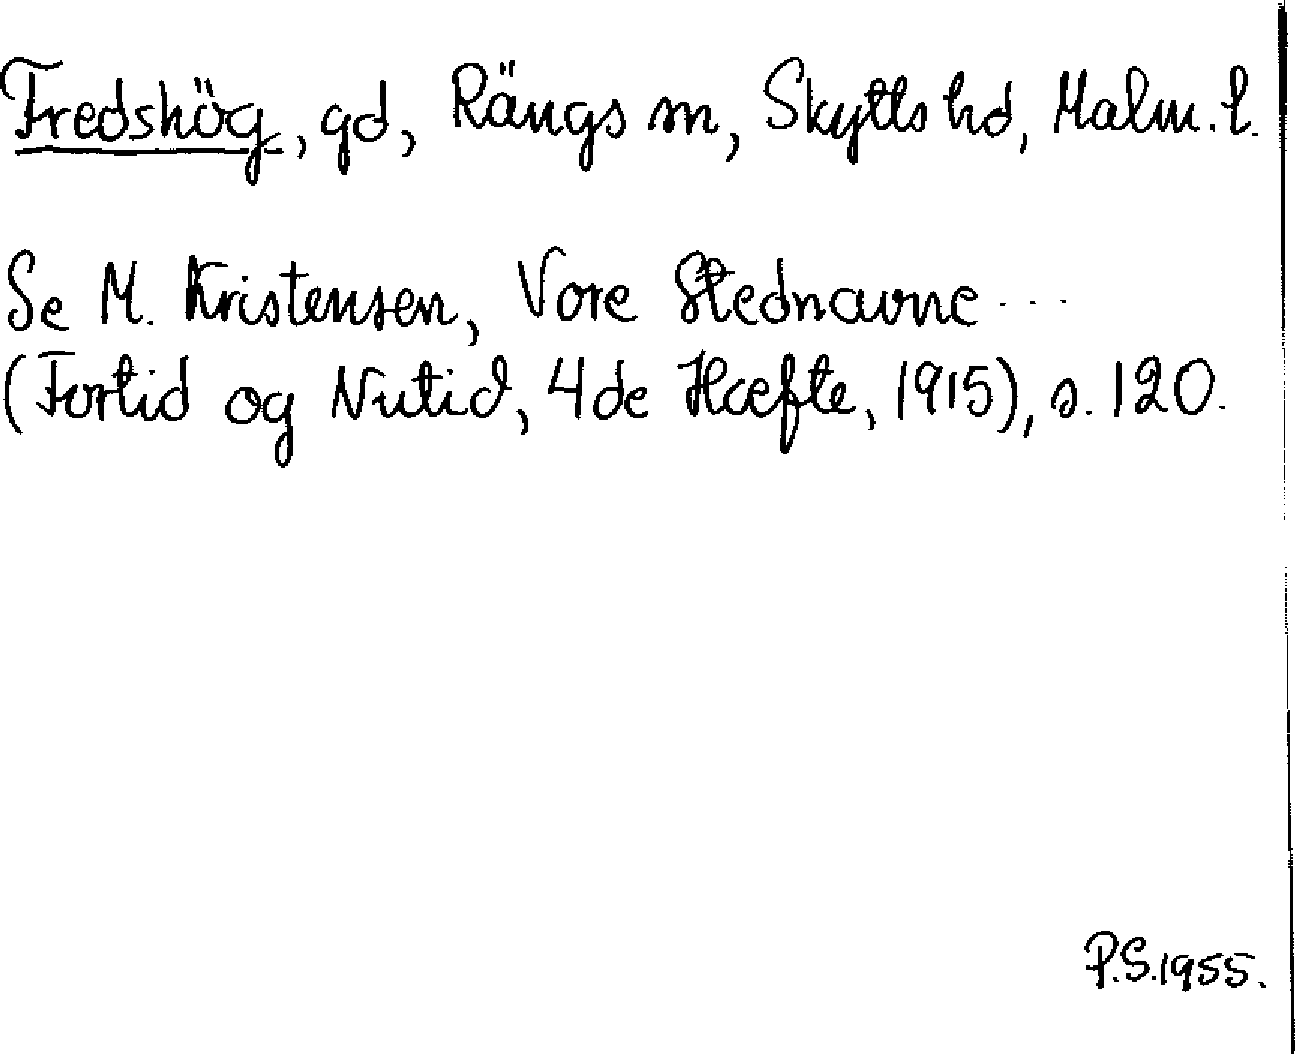 Fredshög, gd, Rängs sn, Skytts hd, Malm. l.
Se M. Kristensen, Vore Stednavne ...
(Fortid og Nutid, 4de Hæfte, 1915), s. 120.
P.S. 1955.